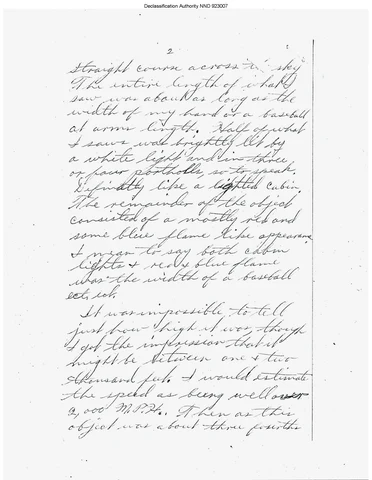 Declassification Authority NND 923007
2
straight course across the sky
The entire length of what I
saw was about as long as the
width of my hand or a baseball
at arms length. Half of what
I saw was brightly lit by
a white light and in three
or four portholes, so to speak.
Definitly like a lighted cabin.
The remainder of the object
consisted of a mostly red and
some blue flame like appearance
I mean to say both cabin
lights & red & blue flame
was the width of a baseball
ect, ect.
It was impossible to tell
just how high it was, though
I got the impression that it
might be between one & two
thousand feet. I would estimate
the speed as being well over
2,000 M.P.H.. Then as this
object was about three fourths